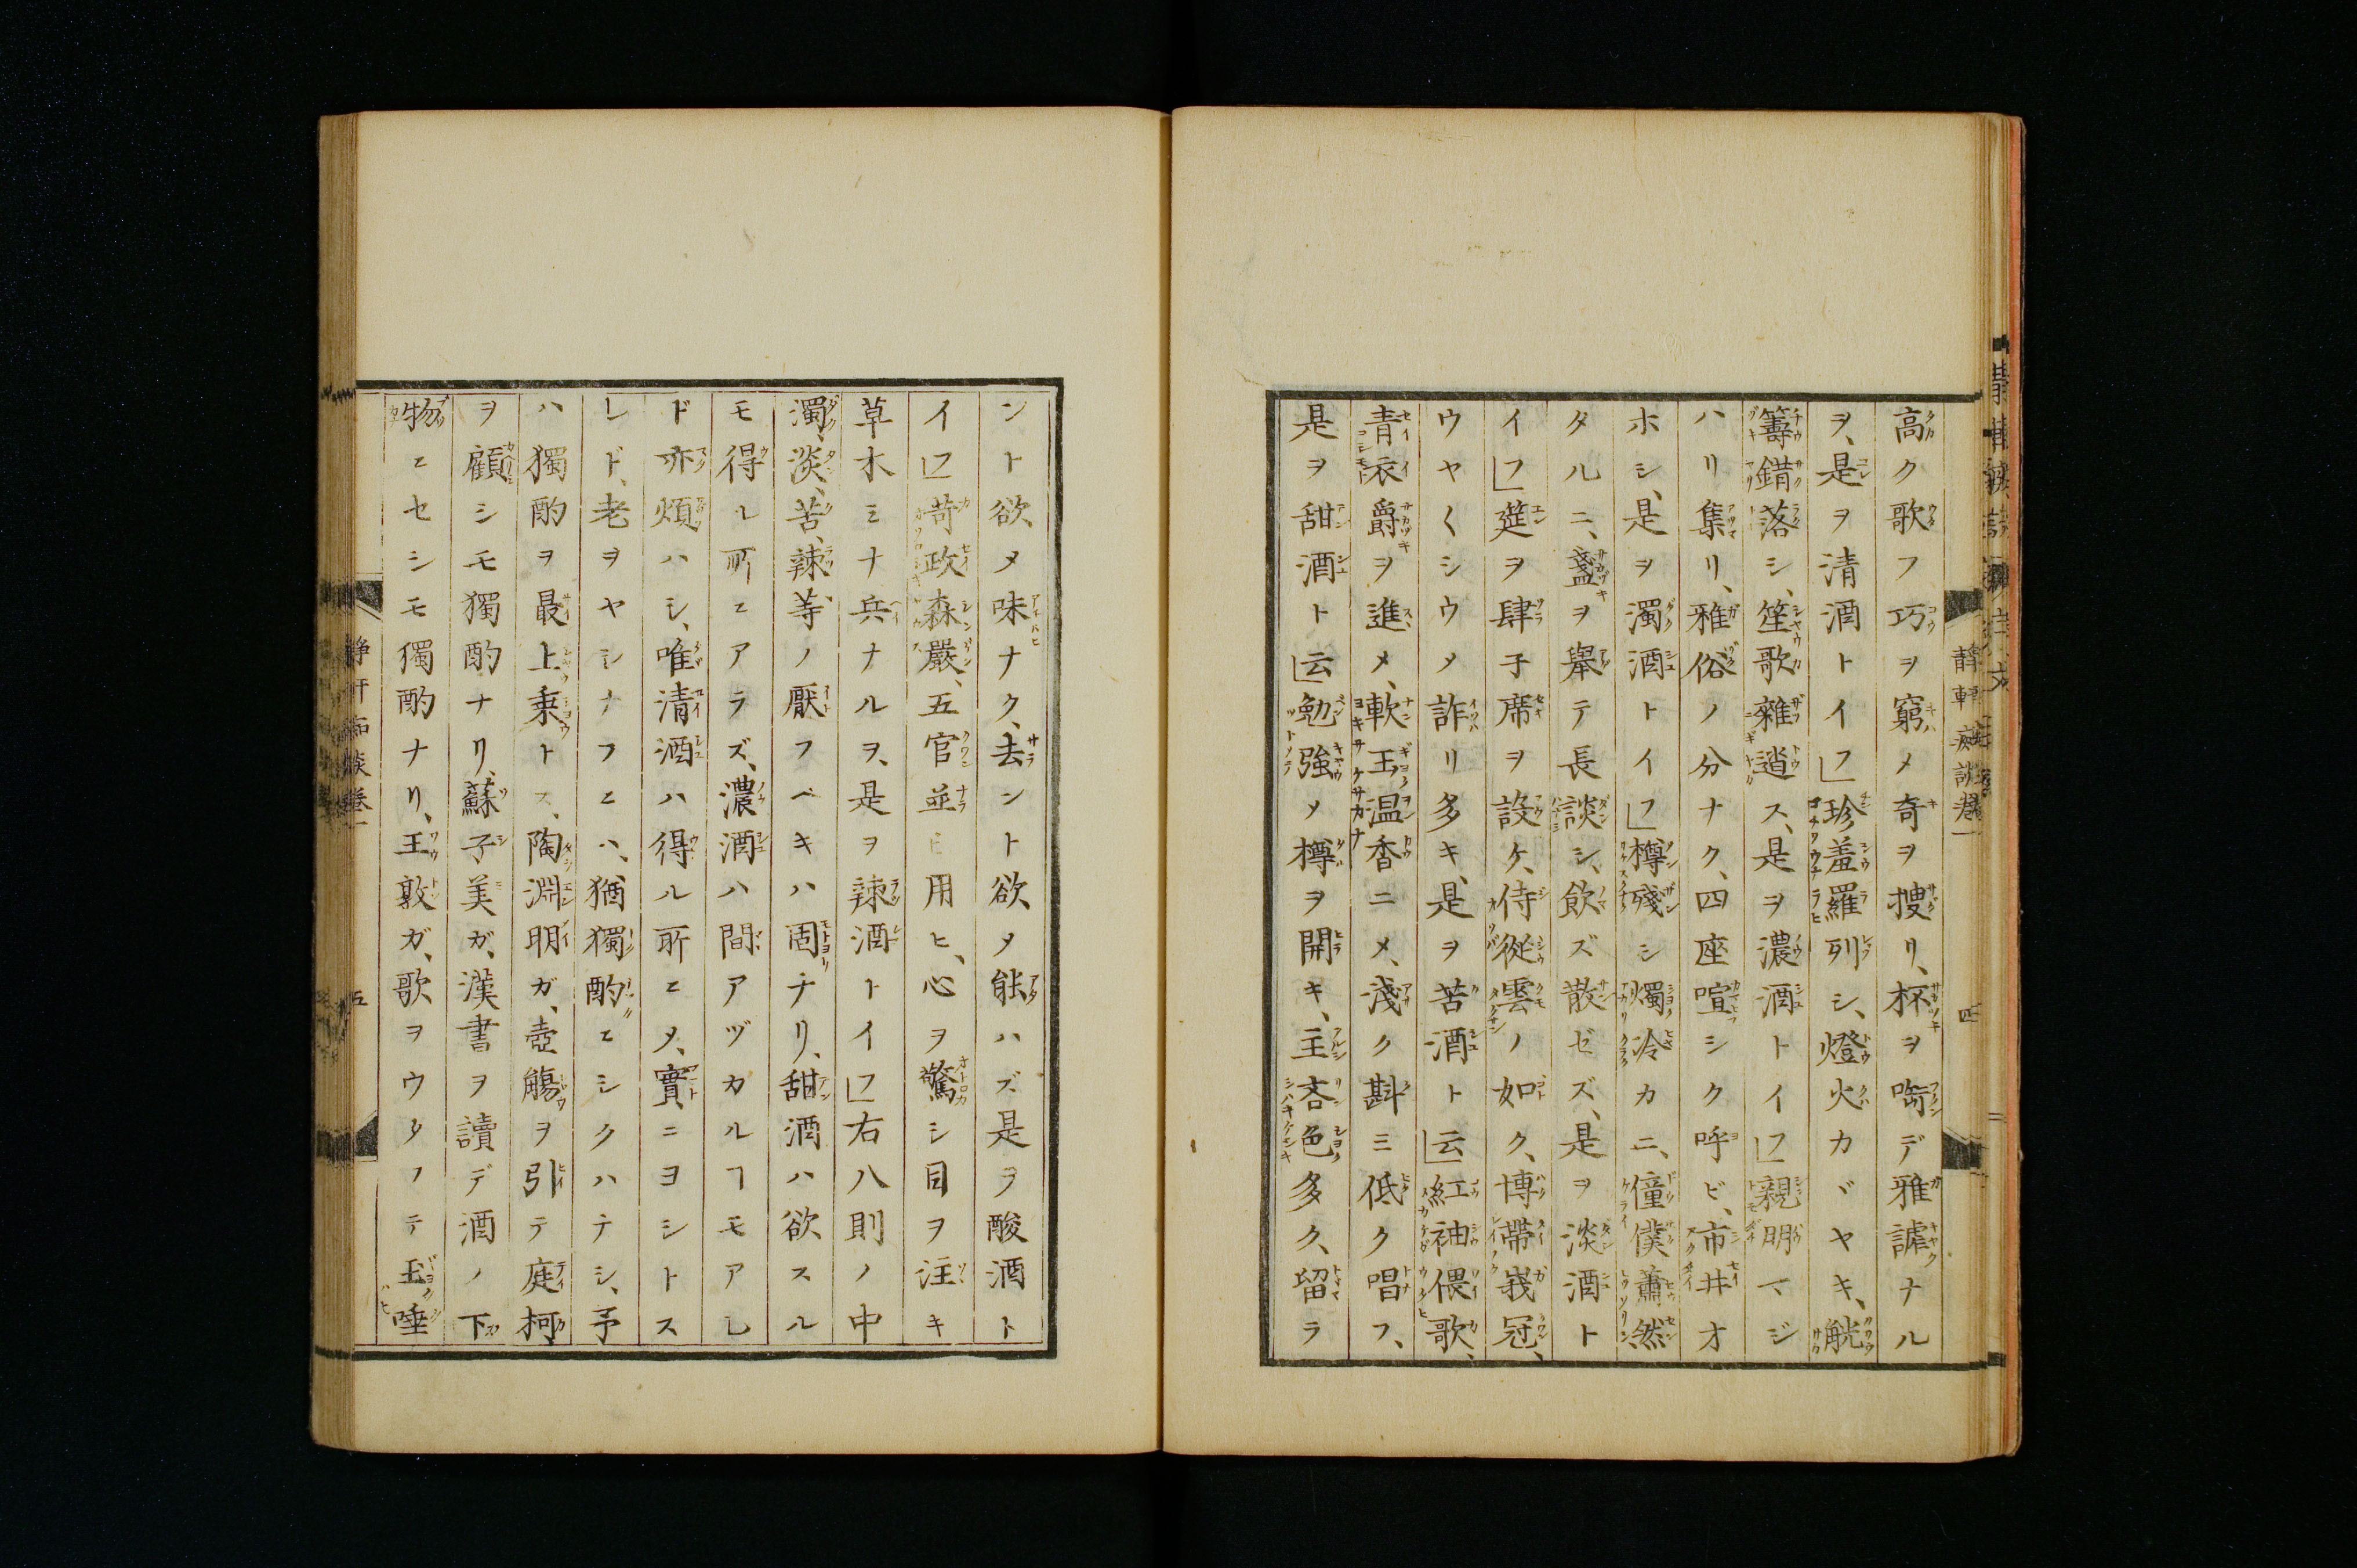 高ク歌フ巧ヲ窮メ奇ヲ捜リ、杯ヲ啣デ雅謔ナル
ヲ、是ヲ清酒トイフ」珍羞羅列シ、燈火カヾヤキ、觥
籌錯落シ、笙歌雜遝ス、是ヲ濃酒トイフ」親朋マジ
ハリ集リ、雅俗ノ分ナク、四座喧シク呼ビ、市井オ
ホシ、是ヲ濁酒トイフ」樽殘シ燭冷カニ、僮僕蕭然
タルニ、盞ヲ舉テ長談シ、飲ズ散ゼズ、是ヲ淡酒ト
イフ」筵ヲ肆子席ヲ設ケ、侍從雲ノ如ク、博帶峩冠、
ウヤ〱シウメ詐リ多キ、是ヲ苦酒ト云」紅袖偎歌、
青衣爵ヲ進メ、軟玉温香ニメ、淺ク斟ミ低ク唱フ、
是ヲ甜酒ト云」勉強メ樽ヲ開キ、主吝色多ク、留ラ
靜軒痴談卷一
四
ント欲メ味ナク、去ント欲メ能ハズ是ヲ酸酒ト
イフ」苛政森嚴、五官並ビ用ヒ、心ヲ驚シ目ヲ注キ
草木ミナ兵ナルヲ、是ヲ辣酒トイフ」右八則ノ中
濁、淡、苦、辣、等ノ厭フベキハ固ヨリナリ、甜酒ハ欲スル
モ得ル所ニアラズ、濃酒ハ間アヅカルヿモアレ
ド亦煩ハシ、唯清酒ハ得ル所ニメ、實ニヨシトス
レド、老ヲヤシナフニハ、猶獨酌ニシクハナシ、予
ハ獨酌ヲ最上乗トス、陶淵明ガ、壺觴ヲ引テ庭柯
ヲ顧シモ獨酌ナリ、蘇子美ガ、漢書ヲ讀デ酒ノ下
物ニセシモ獨酌ナリ、王敦ガ、歌ヲウタフテ玉唾
靜軒痴談卷一
五